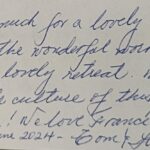 much for a lovely
the wonderful
lovely retreat.
culture of
! We love Franc
2024 - Tom &